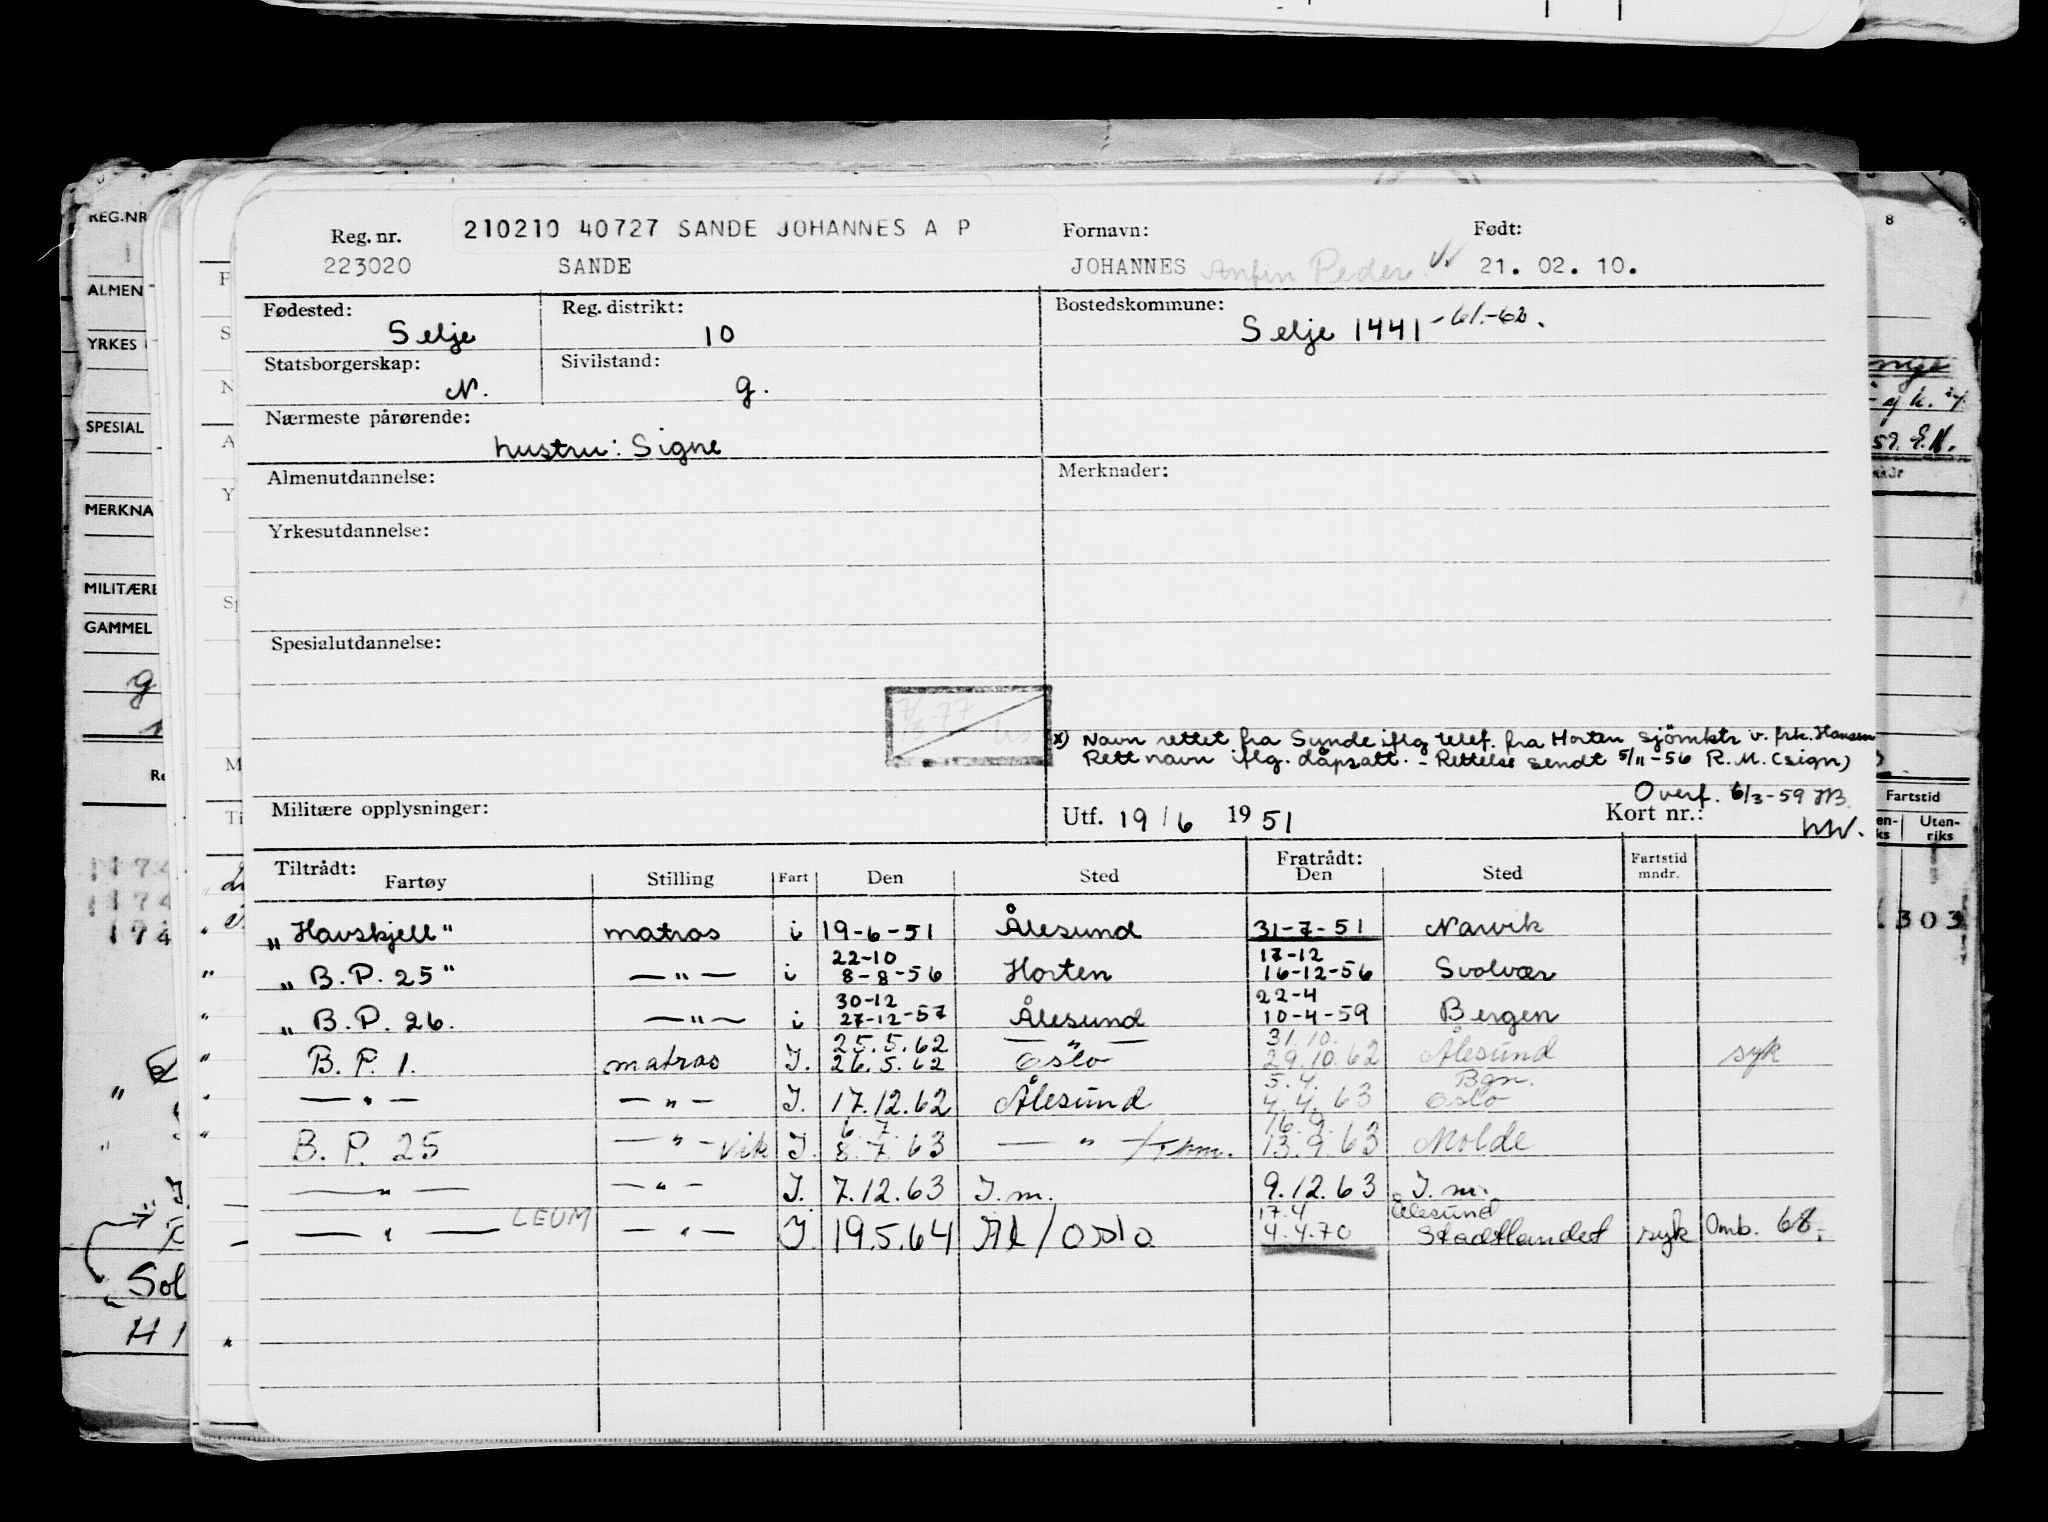 210210 40727 SANDE JOHANNES A P
Reg. nr. Fornavn: Født:
223020 SANDE JOHANNES Anfin Peder 21. 02. 10.
Fødested: Reg. distrikt: Bostedskommune:
Selje 10 Selje 1441 -61.-62.
Statsborgerskap: Sivilstand:
N. g.
Nærmeste pårørende:
hustru: Signe
Almenutdannelse: Merknader:
Yrkesutdannelse:
Spesialutdannelse:
x) Navn rettet fra Sunde iflg telef. fra Horten sjömktr v. frk. Hansen
Rett navn iflg. dåpsatt. - Rettelse sendt 5/11-56 R.M. (sign)
Overf. 6/3-59
Militære opplysninger: Utf. 19/6 1951 Kort nr.:
Tiltrådt: Fratrådt: Fartstid
Fartøy Stilling Fart Den Sted Den Sted mndr.
"Havskjell" matros i 19-6-51 Ålesund 31-7-51 Narvik
22-10 17-12
"B.P. 25" —"— i 8-8-56 Horten 16-12-56 Svolvær
30-12 22-4
"B.P. 26. —"— i 27-12-57 Ålesund 10-4-59 Bergen
25.5.62 —"— 31.10.
B.P. 1. matros I. 26.5.62 Oslo 29.10.62 Ålesund syk
5.4. Bgn.
—"— —"— I. 17.12.62 Ålesund 4.4.63 Oslo
6.7. 16.9.
B.P. 25 —"— vik I. 8.7.63 —"— /Thm. 13.9.63 Molde
—"— —"— I. 7.12.63 I.m. 9.12.63 I.m.
17.4 Ålesund
—"— LEUM —"— I. 19.5.64 Ål/Oslo 4.4.70 Stadtlandet syk Omb. 68.
REG.NR
ALMEN
YRKES
SPESIAL
MERKNA
MILITÆRE
GAMMEL
g
Sol
H
8
59.
Fartstid
Uten-
riks
303